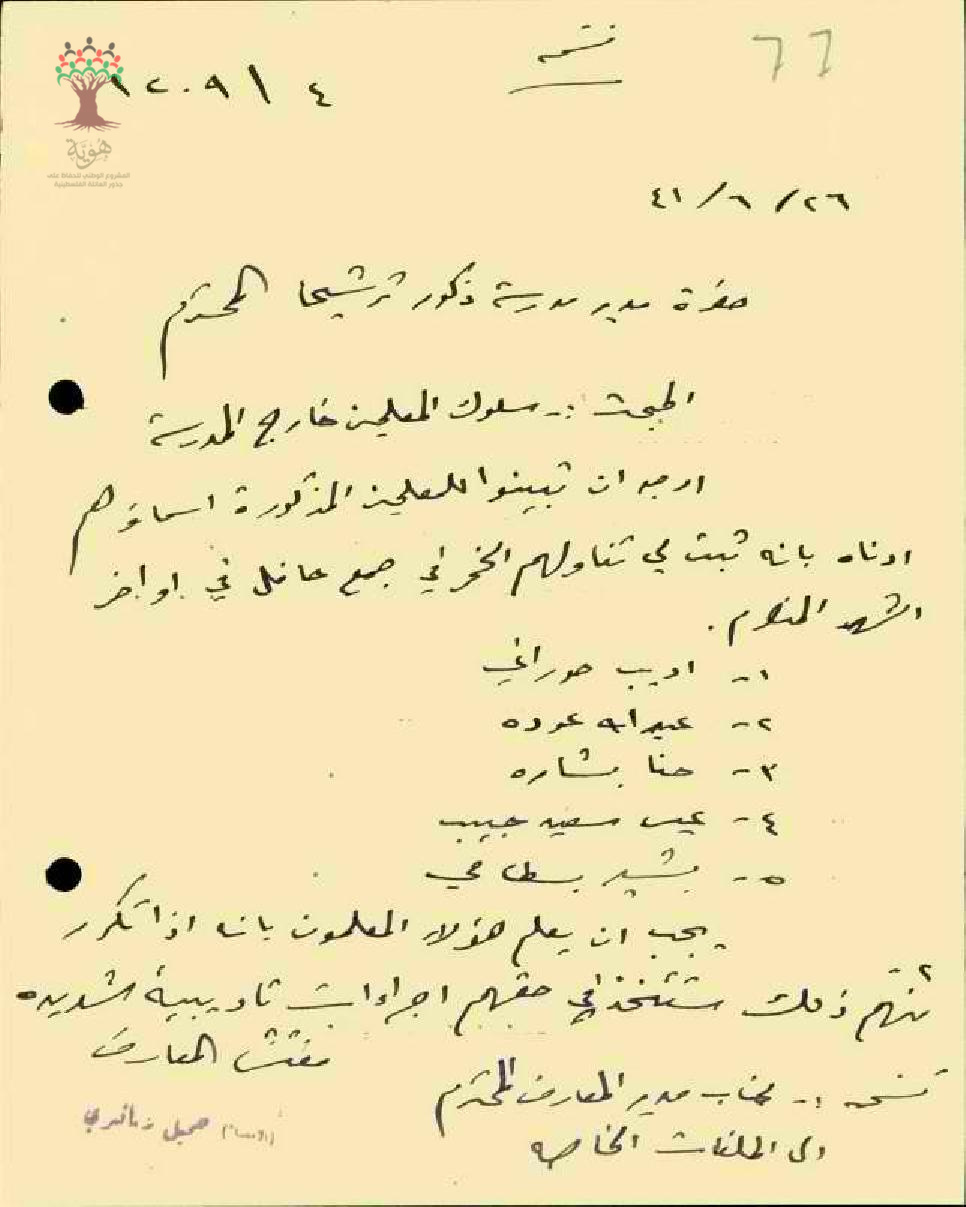 نسخه
77
٤ / ١٢٠٩
هَوِيَّة
المشروع الوطني للحفاظ على
جذور العائلة الفلسطينية
٢٦/ ٦/ ٤١
حضرة مدير مدرسة ذكور ترشيحا المحترم
المبحث :- سلوك المعلمين خارج المدرسة
ارجو ان تبينوا للمعلمين المذكورة اسماؤهم
ادناه بانه ثبت لي تناولهم الخمر في جمع حافل في اواخر
الشهر المنصرم.
١- اديب حوراني
٢- عبدالله عوده
٣- حنا بشاره
٤- عيسى سعيد حبيب
٥- بشير بسطامي
يجب ان يعلم هؤلاء المعلمون بانه اذا تكرر
منهم ذلك ستتخذ في حقهم اجراءات تاديبية شديده
مفتش المعارف
نسخه :- لجناب مدير المعارف المحترم
(الامضاء) جميل
الى الملفات الخاصه